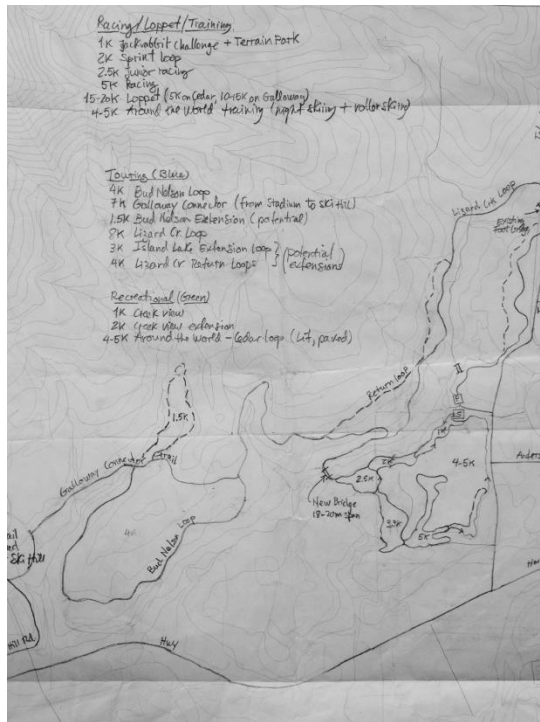 Racing/Loppet/Training
1K Jackrabbit Challenge + Terrain Park
2K Sprint Loop
2.5K Junior racing
5K Racing
15-20K Loppet (5K on Cedar, 10-15K on Galloway)
4-5K Around the World training (night skiing + roller skiing)
Touring (Blue)
4K Bud Nelson Loop
7K Galloway Connector (from Stadium to Ski Hill)
1.5K Bud Nelson Extension (potential)
8K Lizard Cr Loop
3K Island Lake Extension Loop } (potential
4K Lizard Cr Return Loops } extensions)
Recreational (Green)
1K Creek view
2K Creek view extension
4-5K Around the World - Cedar Loop (Lit, paved)
Lizard Crk Loop
Existing
Return Loop
1.5K
Galloway Connector Trail
4-5K
2K
2.5K
New Bridge
18-20m span
4K
Bud Nelson Loop
5K
Ski Hill
Hill Rd
Hwy